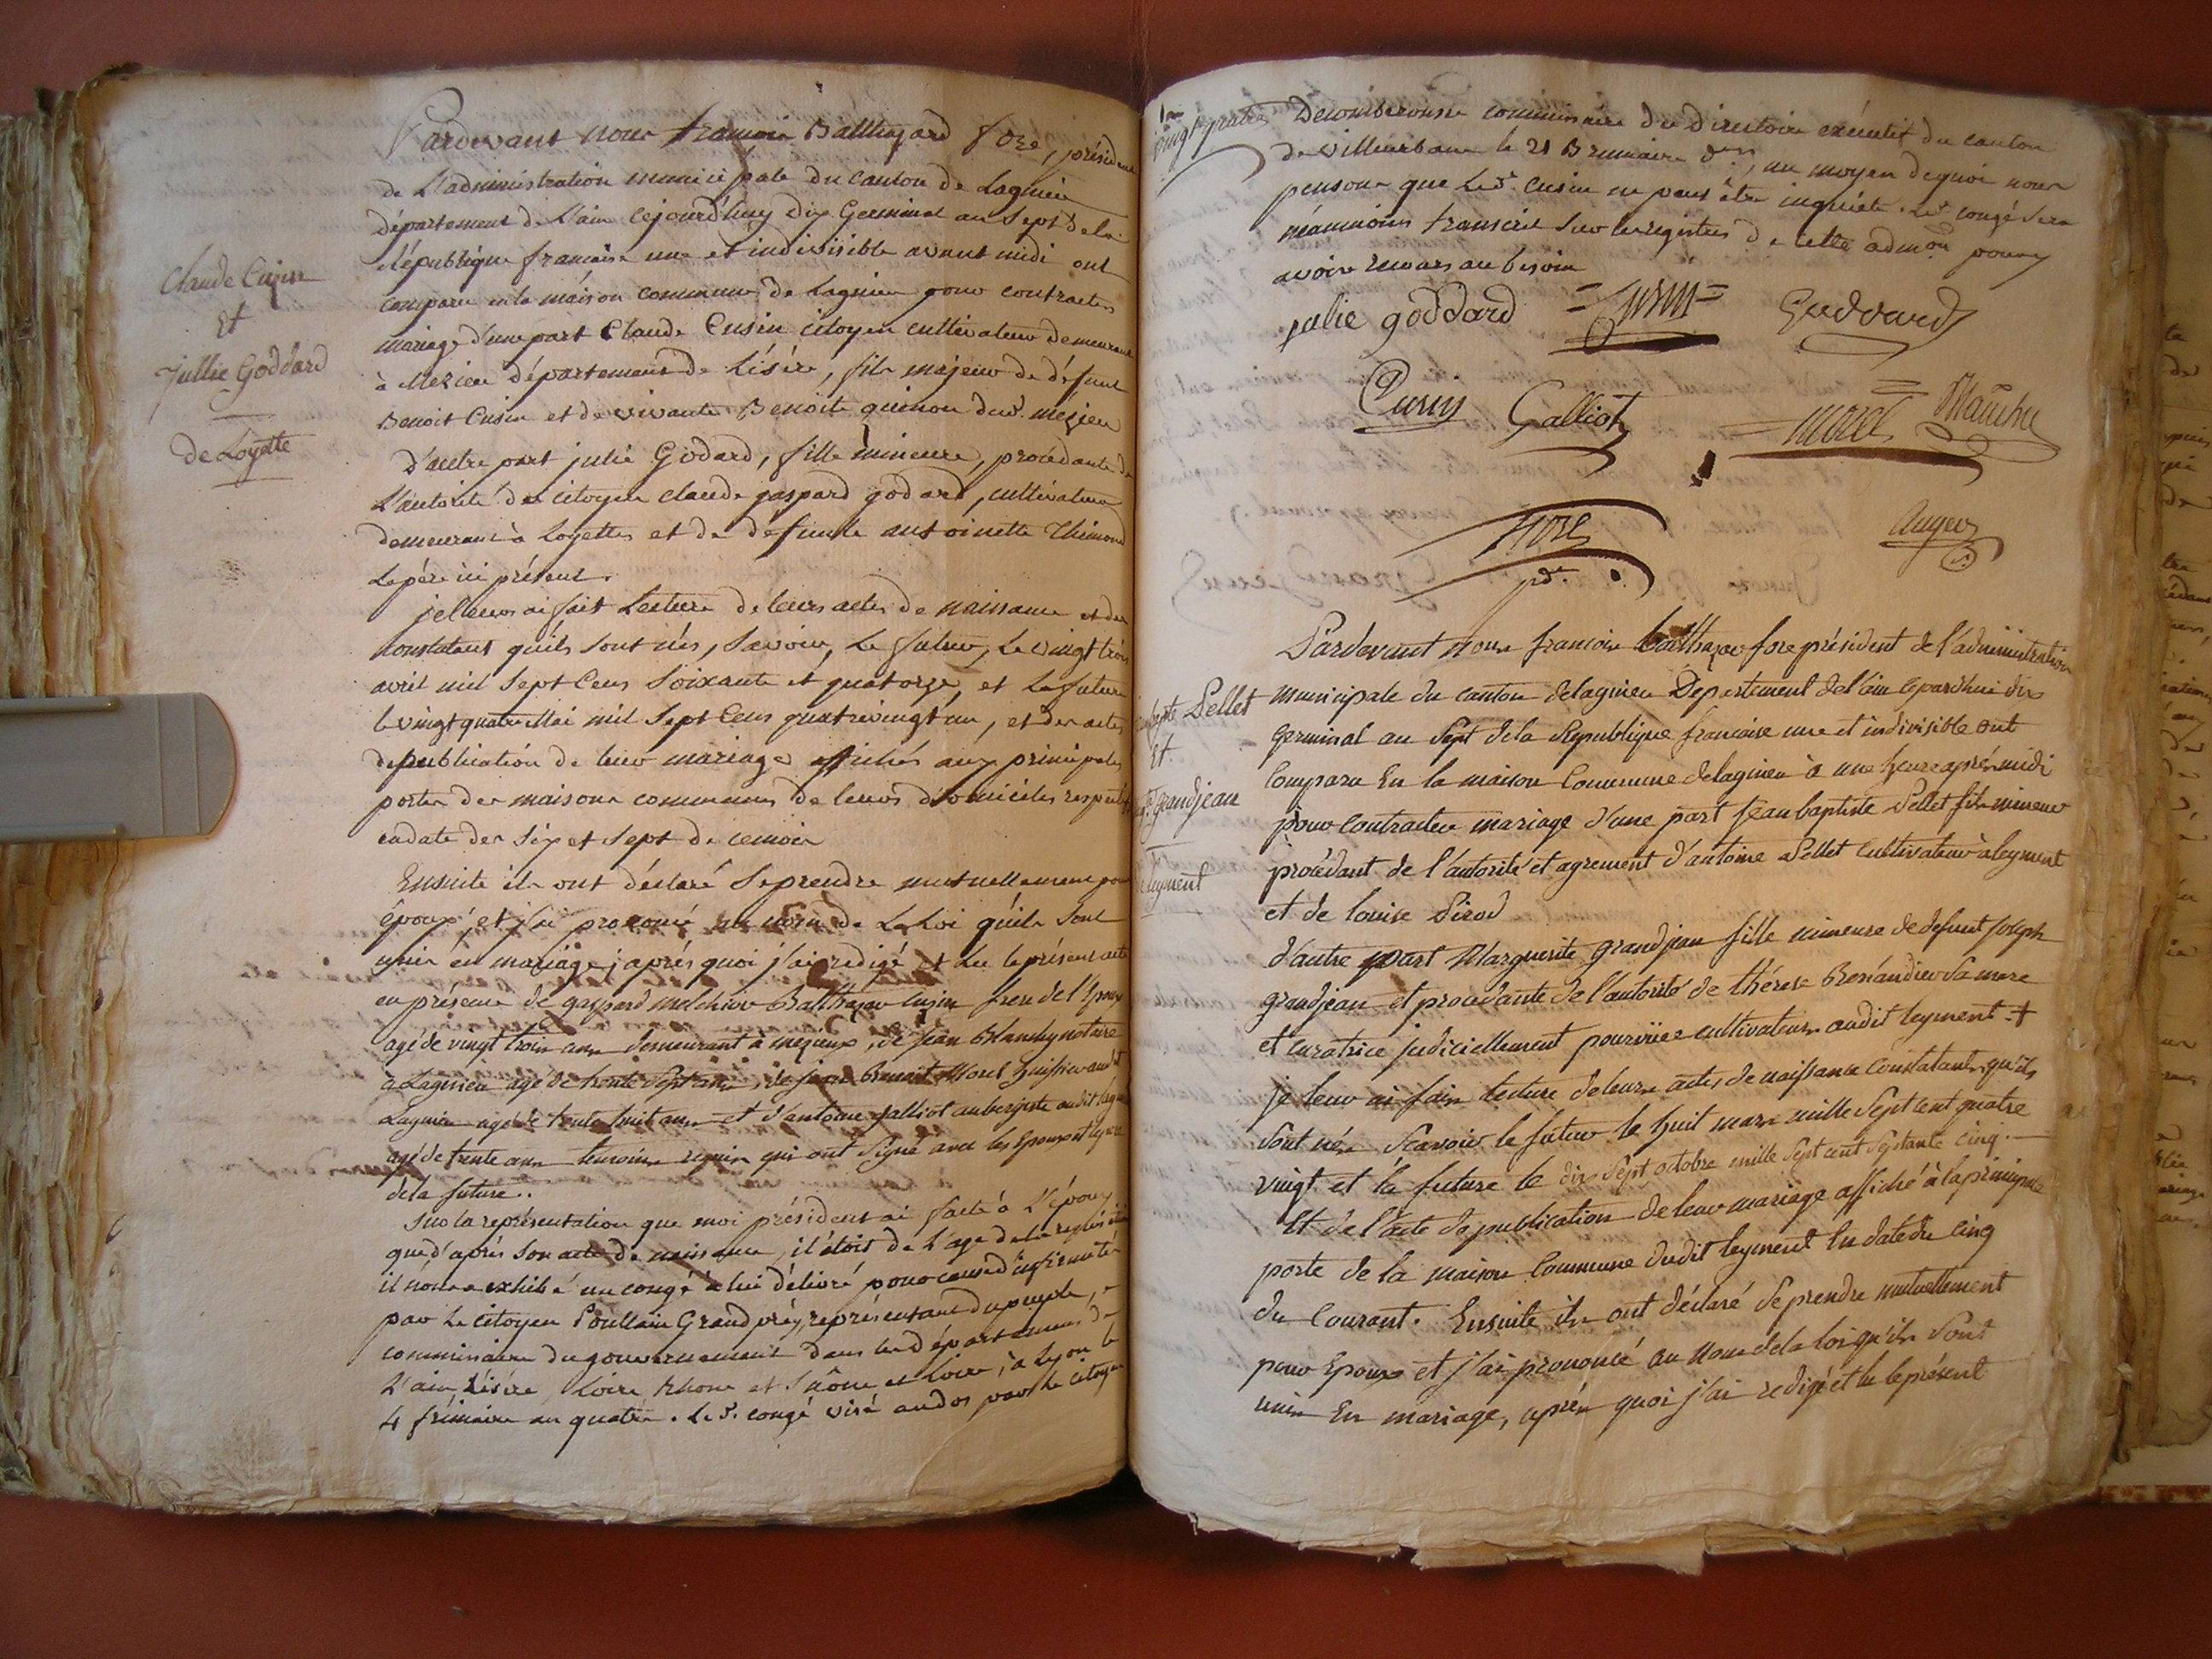 Claude Cusin
et
Jullie Goddard
de Loyette
Pardevant nous francois Balthazard fore, président
de L'administration municipale du canton de Lagnieu
département de L'ain cejourd'huy dix Germinal an Sept de la
république francaise une et indivisible avant midi ont
comparu en la maison commune de Lagnieu pour contracter
mariage d'une part Claude Cusin citoyen cultivateur demeurant
à Mezieu département de Lisère, fils majeur de défunt
Benoit Cusin et de vivante Benoite guinon dud. mezieu
D'autre part julie Godard, fille mineure, procédante de
L'autorité du citoyen claude gaspard godard, cultivateur
demeurant à Loyettes et de defunte antoinette Thimond
Le père ici présent.
je leurs ai fait Lecture de leurs actes de naissance et des
constatant qu'ils sont nés, Savoir, Le futur, Le vingt trois
avril mil Sept Cens Soixante et quatorze, et La future
le vingt quatre Mai mil Sept Cens quatrevingt un, et des actes
de publication de leur mariage affichés aux principales
portes des maisons communes de leurs domiciles respectifs
en date des Six et Sept de ce mois
Ensuite ils ont déclaré Se prendre mutuellement pour
époux, et j'ai prononcé au nom de La Loi qu'ils Sont
unis en mariage; après quoi j'ai redigé et Lu le présent acte
en présence de gaspard melchior Balthazar Cusin frere de l'Epoux
agé de vingt trois ans demeurant à mezieux, de Jean Blanchy notaire
à Lagnieu agé de trente Sept ans, de Benoit Morel huissier audit
Lagnieu agé de trente huit ans et d'antoine galliot aubergiste audit Lagnieu
agé de trente ans temoins requis qui ont Signé avec les Epoux et le pere
de la future.
Sur la représentation que moi président ai faite à L'époux
que d'après Son acte de naissance, il étois de L'age de la
il nous a exhibé un congé à lui délivré pour cause d'infirmité
par Le citoyen Poullain Grandprey, représentant du peuple,
commissaire du gouvernement dans les départements de
L'ain, Lisère, Loire, Rhone et Saône et Loire, à Lyon le
4 frimaire an quatre. Le d. congé visé au dos par Le Citoyen
vingt quatre
Decomberousse commissaire du directoire exécutif du canton
de villeurbanne le 21 Brumaire der., au moyen de quoi nous
pensons que Led. Cusin ne peut être inquiété. Led. congé sera
néanmoins transcrit Sur les registres de cette admon. pour y
avoir recours au besoin
julie goddard Cusin Goddard
Cusin Galliot Morel
fore Augers
pdt.
Pellet
et
grandjean
leyment
Pardevant nous francois balthazar fore président de l'administration
municipale du canton de lagnieu Departement de l'ain cejourd'hui dix
germinal an Sept de la Republique francaise une et indivisible ont
Comparu En la maison Commune de lagnieu à une heure après midi
pour Contracter mariage d'une part Jean baptiste Pellet fils mineur
procédant de l'autorité et agrement d'antoine Pellet cultivateur à leyment
et de louise Pirod
d'autre part Marguerite grandjean fille mineure de defunt Joseph
grandjean et procedante de l'autorité de thérese Bresandieu Sa mere
et curatrice judiciellement pourvüee cultivateurs audit leyment +
je leur ai fais lecture de leurs actes de naissance Constatants qu'ils
Sont nés Scavoir le futur le huit mars mille Sept cent quatre
vingt et la future le dix Sept octobre mille Sept cent Septante cinq.
Et de l'acte de publication de leur mariage affiché à la principale
porte de la maison Commune dudit leyment En date du cinq
du Courant. Ensuite ils ont déclaré Se prendre mutuellement
pour Epoux et j'ai prononcé au nom de la loi qu'ils Sont
unis En mariage, après quoi j'ai redigé et lu le présent